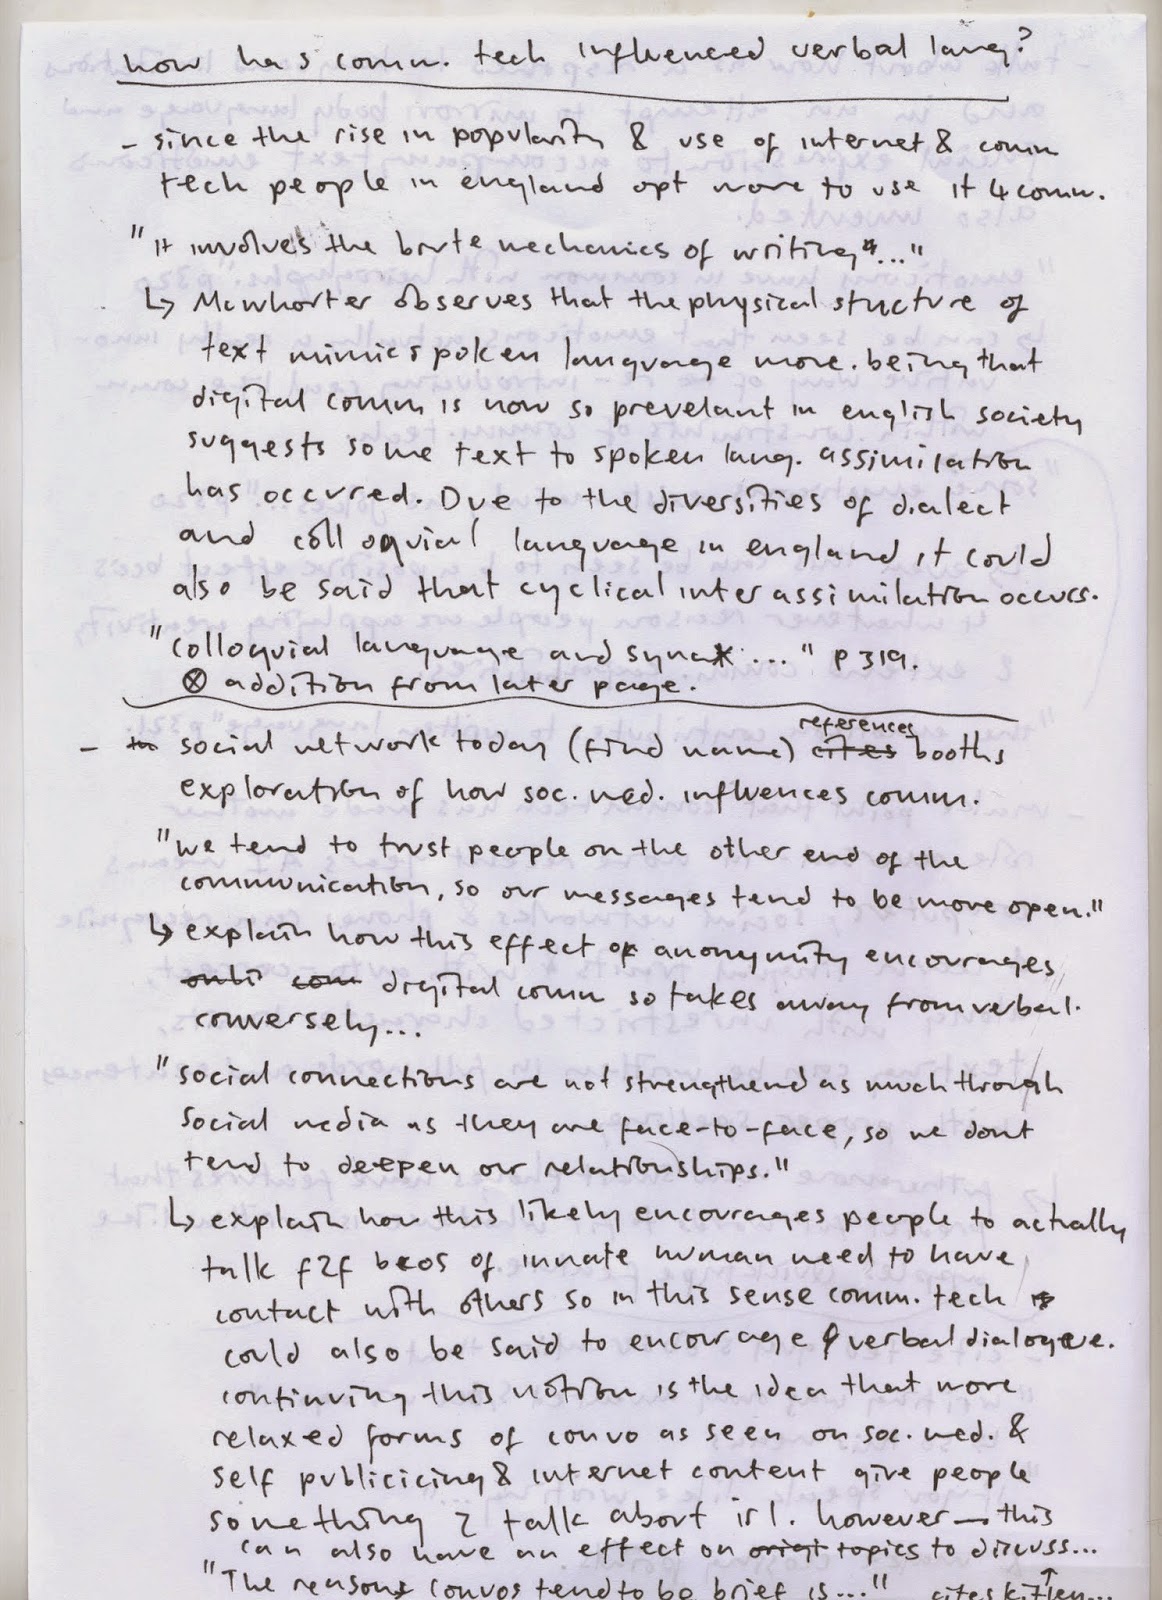 how has comm. tech influenced verbal lang?
- since the rise in popularity & use of internet & comm
tech people in england opt more to use it 4 comm.
"it involves the brute mechanics of writing"..."
↳ McWhorter observes that the physical structure of
text mimics spoken language more. being that
digital comm is now so prevelant in english society
suggests some text to spoken lang. assimilation
has occured. Due to the diversities of dialect
and colloquial language in england it could
also be said that cyclical inter assimilation occurs.
"colloquial language and synax ..." p 319.
⊗ addition from later page.
- social network today (find name) cites references booths
exploration of how soc. med. influences comm.
"we tend to trust people on the other end of the
communication, so our messages tend to be more open."
↳ explain how this effect of anonymity encourages
com digital comm so takes away from verbal.
conversely...
"social connections are not strengthend as much through
social media as they are face-to-face, so we dont
tend to deepen our relationships."
↳ explain how this likely encourages people to actually
talk f2f becos of innate human need to have
contact with others so in this sense comm. tech
could also be said to encourage verbal dialogue.
continuing this notion is the idea that more
relaxed forms of convo as seen on soc. med. &
self publicicing & internet content give people
something 2 talk about irl. however — this
can also have an effect on origi topics to discuss...
"The reason convos tend to be brief is..." cites kitten...